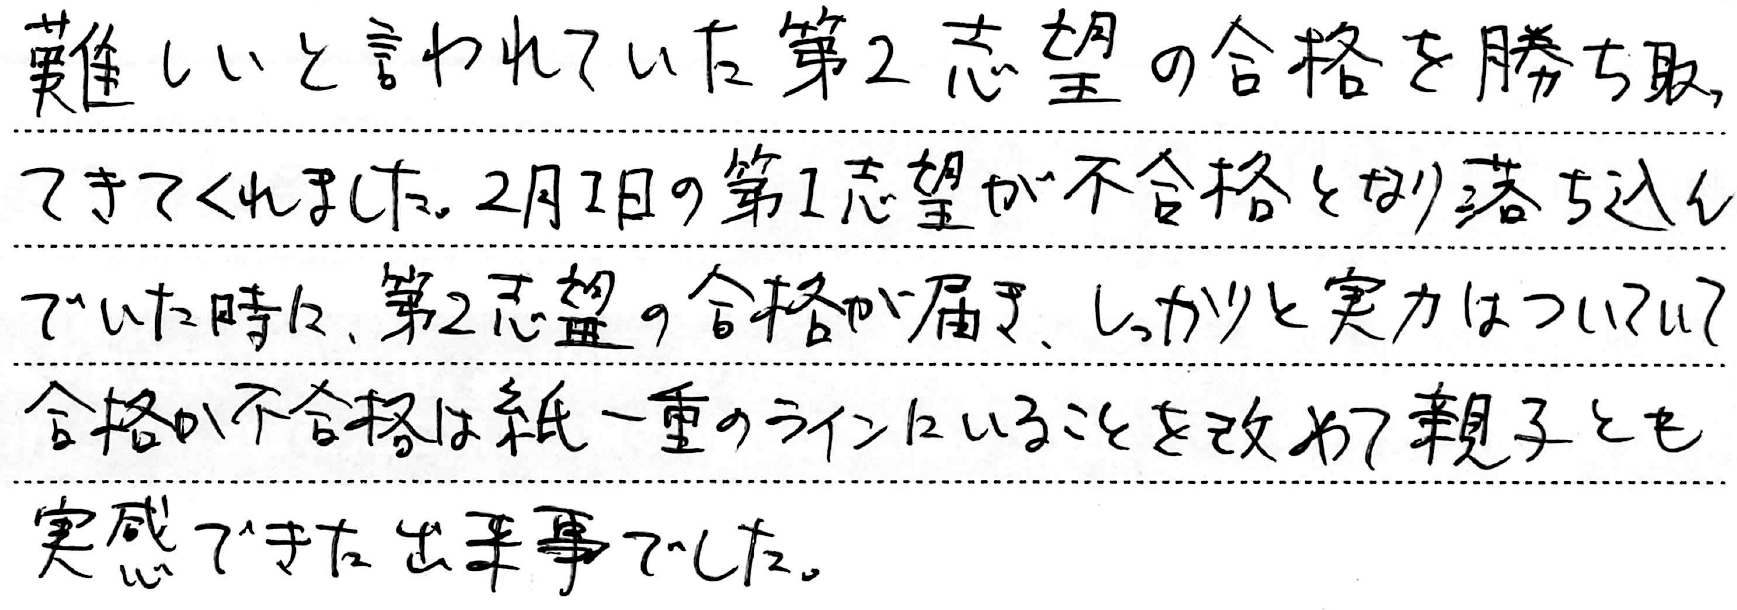 難しいと言われていた第2志望の合格を勝ち取っ
てきてくれました。2月1日の第1志望が不合格となり落ち込ん
でいた時に、第2志望の合格が届き、しっかりと実力はついていて
合格か不合格は紙一重のラインにいることを改めて親子とも
実感できた出来事でした。